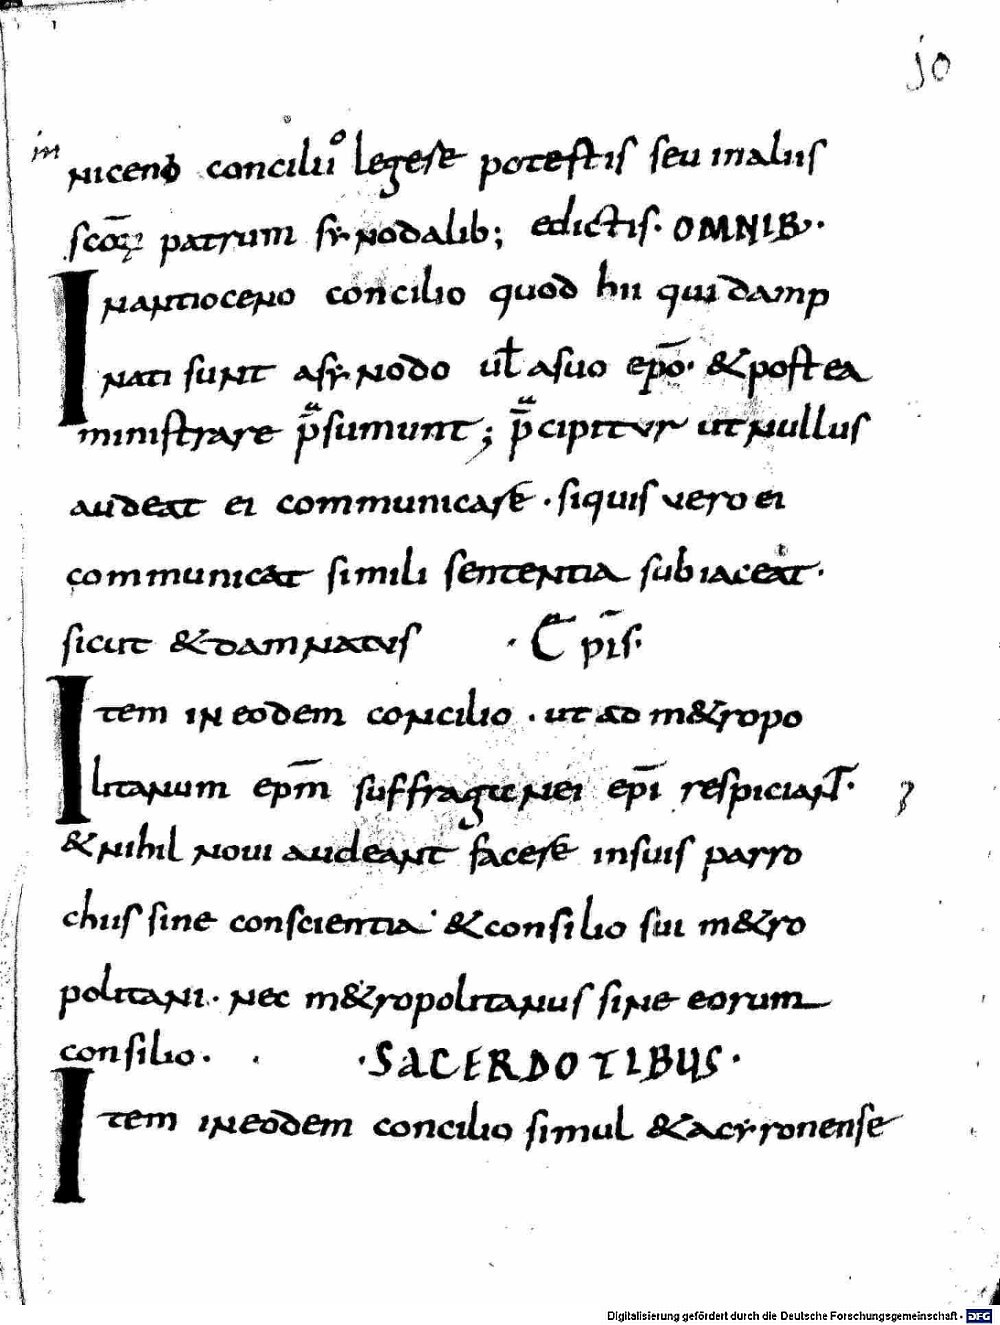 jo
in niceno conciliiº legere potestis seu inaliis
scōꝝ patrum synodalib; edictis. OMNIB;.
Inantioceno concilio quod hii qui damp
nati sunt asynodo uł asuo epō. &postea
ministrare p̄sumunt; p̄cipitur ut nullus
audeat ei communicare. siquis vero ei
communicat simili sententia subiaceat.
sicut &damnatus . C̄ pis̄.
Item in eodem concilio. ut ad m&ropo
litanum epm̄ suffraganei epī respiciant.
&nihil novi audeant facere insuis parro
chiis sine conscientia &consilio sui m&ro
politani. nec m&ropolitanus sine eorum
consilio. . .SACERDOTIBUS.
Item ineodem concilio simul &acyronense
Digitalisierung gefördert durch die Deutsche Forschungsgemeinschaft - DFG